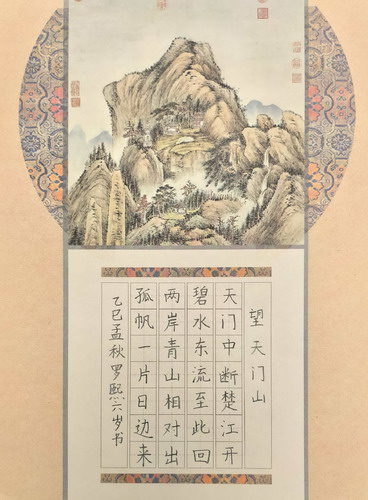 望天门山
天门中断楚江开
碧水东流至此回
两岸青山相对出
孤帆一片日边来
乙巳孟秋罗熙六岁书